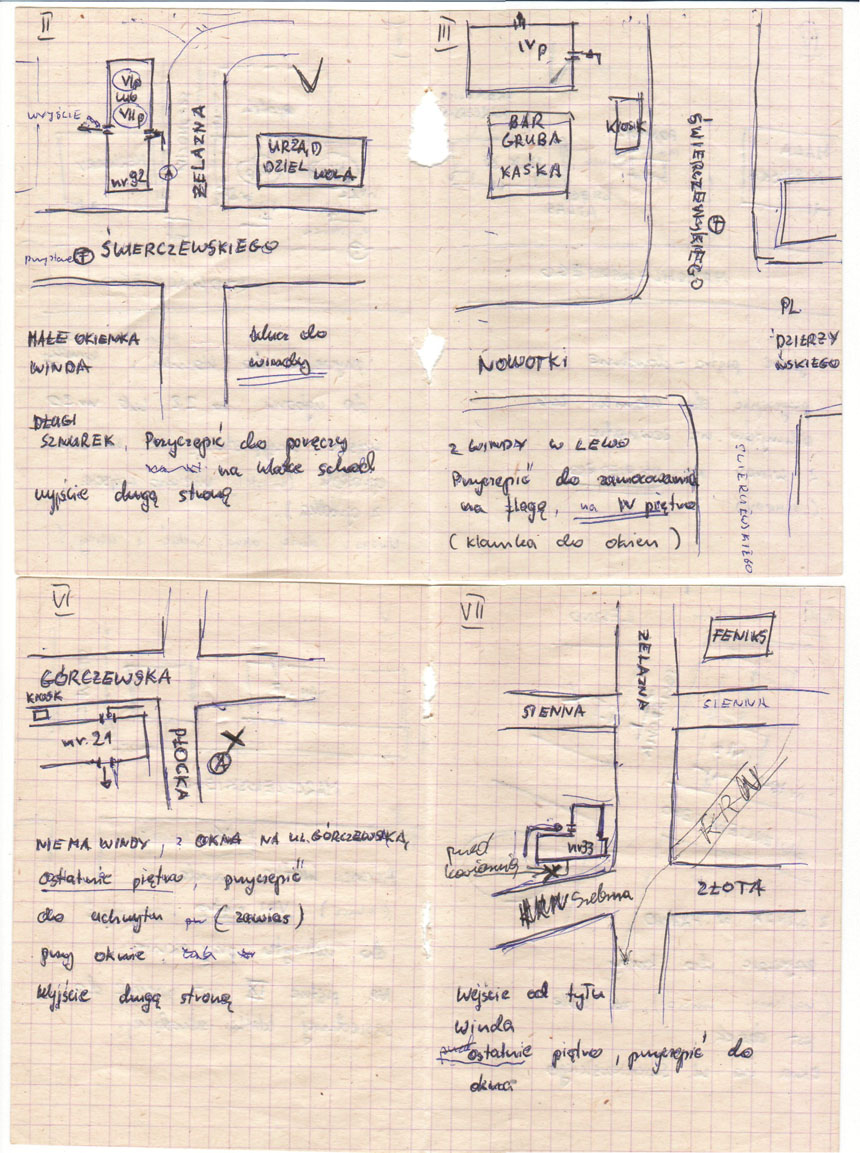 II
VIp
lub
VIIp
WYJŚCIE
nr 92
ŻELAZNA
A
URZĄD
DZIEL WOLA
ŚWIERCZEWSKIEGO
MAŁE OKIENKA
WINDA
klucz do
windy
DŁUGI
SZNUREK. Przyczepić do poręczy
na klatce schod.
wyjście drugą stroną
III
IVp
BAR
GRUBA
KAŚKA
KIOSK
ŚWIERCZEWSKIEGO
PL.
DZIERŻY
ŃSKIEGO
NOWOTKI
ŚWIERCZEWSKIEGO
Z WINDY W LEWO
Przyczepić do zamocowania
na flagę, na IV piętro
(klamka do okien)
VI
GÓRCZEWSKA
KIOSK
nr. 21
PŁOCKA
A
NIE MA WINDY, z OKNA NA UL. GÓRCZEWSKĄ,
ostatnie piętro, przyczepić
do uchwytu (zawias)
przy oknie
Wyjście drugą stroną
VII
ŻELAZNA
FENIKS
SIENNA
SIENNA
KRN
nr 33
przed
kawiarnią
Srebrna
ZŁOTA
Wejście od tyłu
winda
ostatnie piętro, przyczepić do
okna